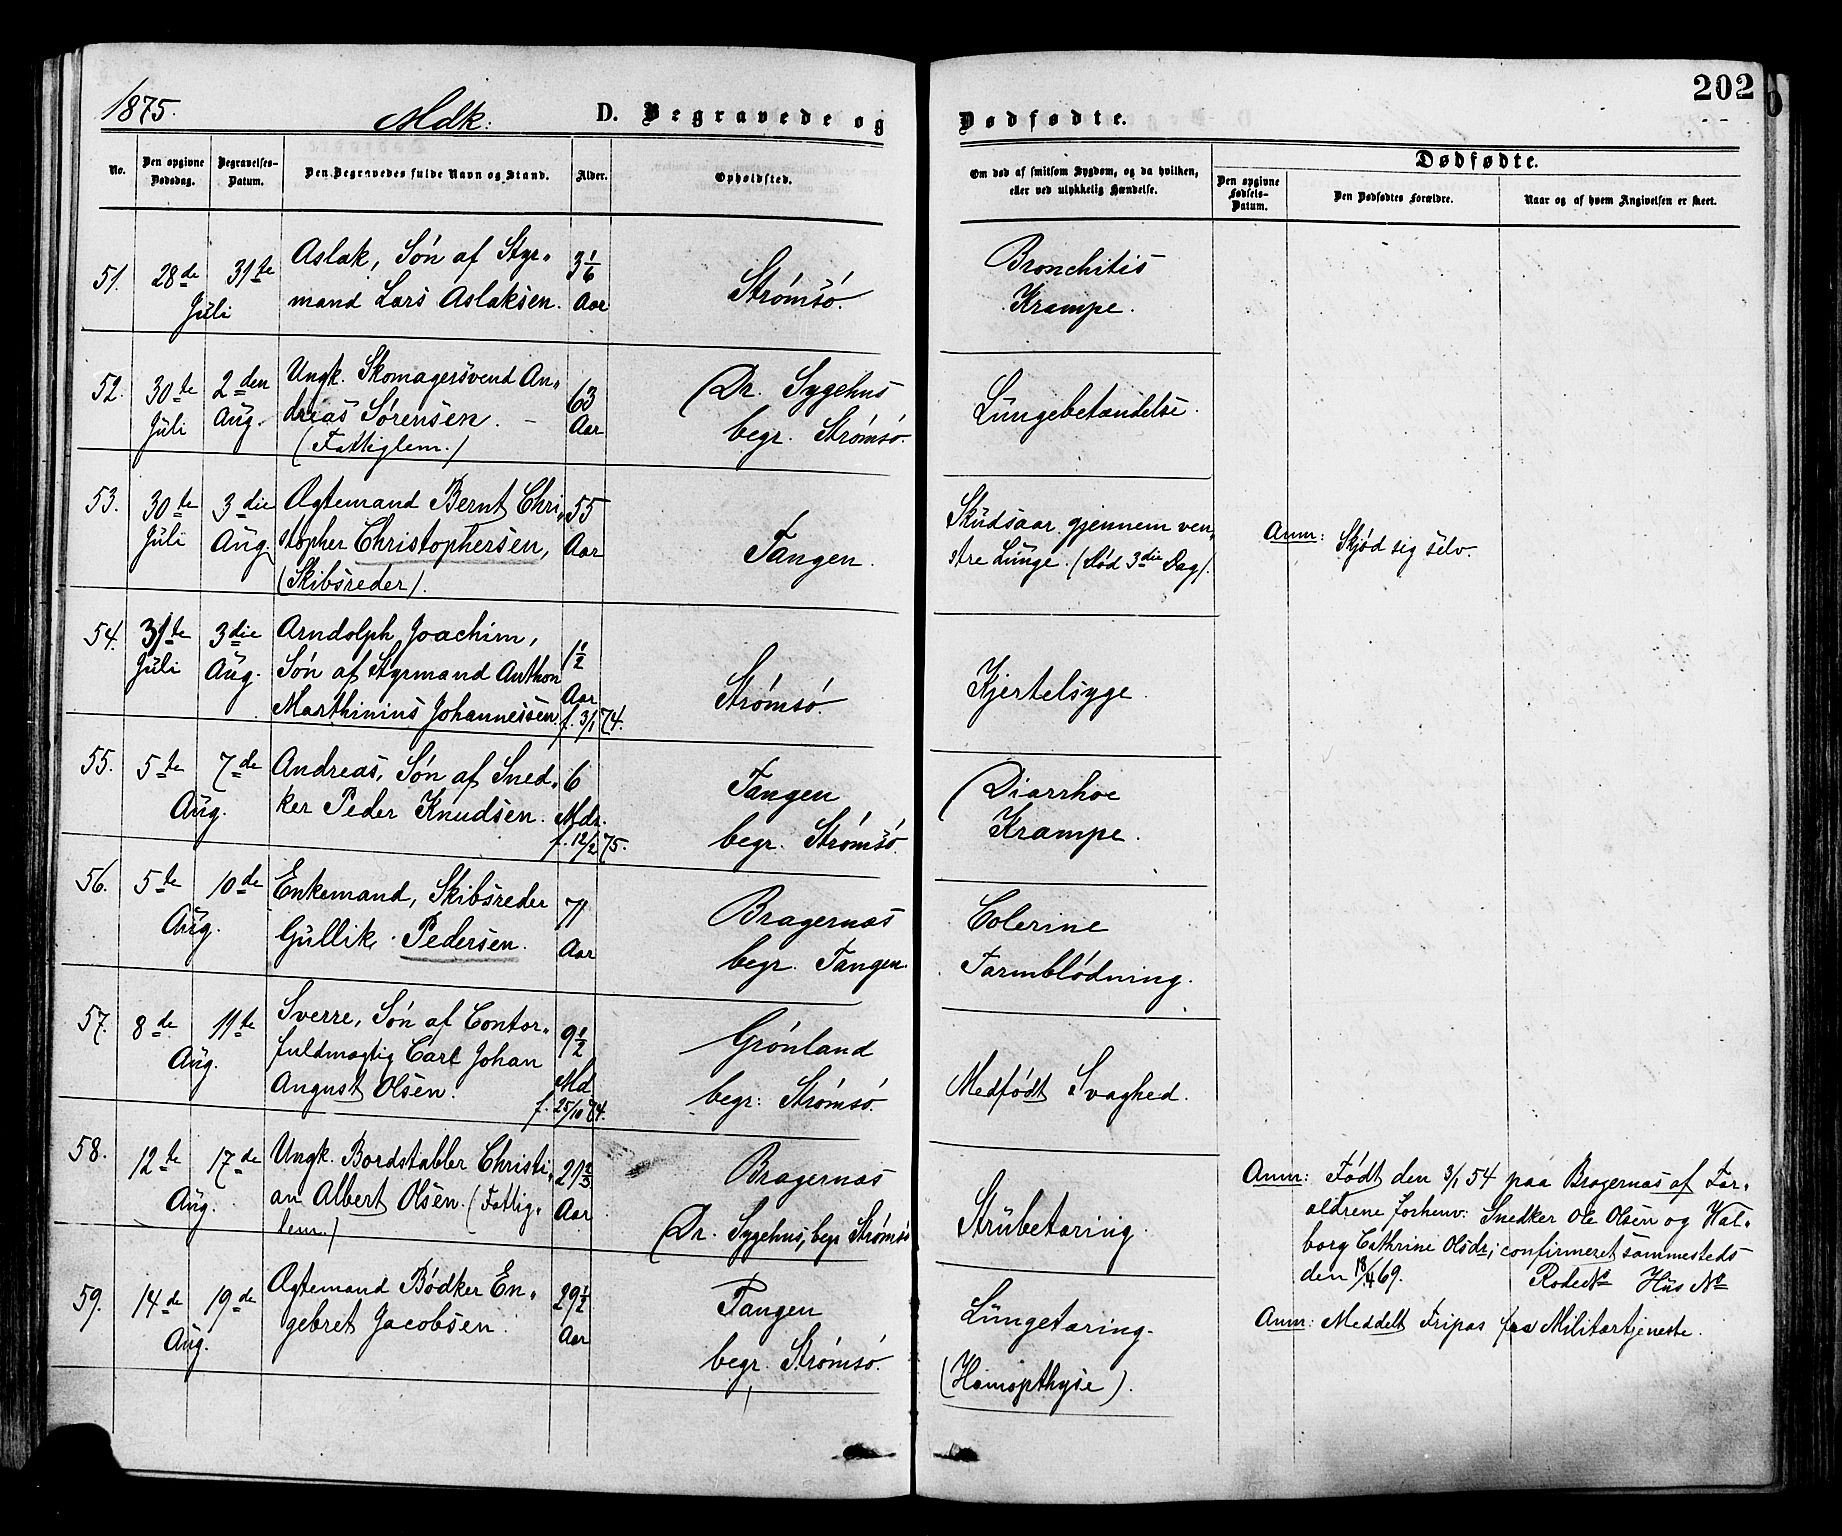 202
1875.
Mdk:
D. Begravede og Dødfødte.
No.
Den opgivne Dødsdag.
Begravelses-Datum.
Den Begravedes fulde Navn og Stand.
Alder.
Opholdsted.
Om død af smitsom Sygdom, og da hvilken,
eller ved ulykkelig Hændelse.
Dødfødte.
Den opgivne Fødsels-Datum.
Den Dødfødtes Forældre.
Naar og af hvem Angivelsen er skeet.
51. 28de 31te Juli
Aslak, Søn af Styr-
mand Lars Aslaksen.
3 1/6 Aar
Strømsø.
Bronchitis
Krampe.
52. 30te Juli 2den Aug.
Ungk. Skomagersvend An-
dreas Sørensen. –
(Fattiglem.)
63 Aar
Dr. Sygehus
begr. Strømsø.
Lungebetændelse.
53. 30te Juli 3die Aug.
Ægtemand Bernt Chri-
stopher Christophersen,
(Skibsreder).
55 Aar
Tangen.
Skudsaar gjennem ven-
stre Lunge. (Død 3die Dag).
Anm: Skjød sig selv.
54. 31te Juli 3die Aug.
Arndolph Joachim,
Søn af Styrmand Anthon
Marthinius Johannessen.
1 1/2 Aar
f. 3/1 74.
Strømsø.
Kjertelsyge.
55. 5te 7de Aug.
Andreas, Søn af Sned-
ker Peder Knudsen.
6 Mdr.
f. 12/2 75.
Tangen
begr. Strømsø.
Diarrhoe
Krampe.
56. 5te 10de Aug.
Enkemand, Skibsreder
Gullik Pedersen.
71 Aar
Bragernæs
begr. Tangen.
Colerine
Tarmblødning.
57. 8de 11te Aug.
Sverre, Søn af Contor-
fuldmægtig Carl Johan
August Olsen.
9 1/2 Md
f. 25/10 74.
Grønland
begr: Strømsø.
Medfødt Svaghed.
58. 12te 17de Aug.
Ungk. Bordstabler Christi-
an Albert Olsen. (Fattig-
lem.)
21 2/3 Aar
Bragernæs
Dr. Sygehus, begr Strømsø
Strubetæring.
Anm: Født den 3/1 54 paa Bragernæs af For-
ældrene forhenv: Snedker Ole Olsen og Val-
borg Cathrine Olsdr; confirmeret sammesteds
den 18/4 69. Rode No Hus No
59. 14de 19de Aug.
Ægtemand Bødker En-
gebret Jacobsen.
29 1/2 Aar
Tangen
begr. Strømsø.
Lungetæring.
(Hæmopthyse).
Anm: Meddelt Fripas fra Militærtjeneste.